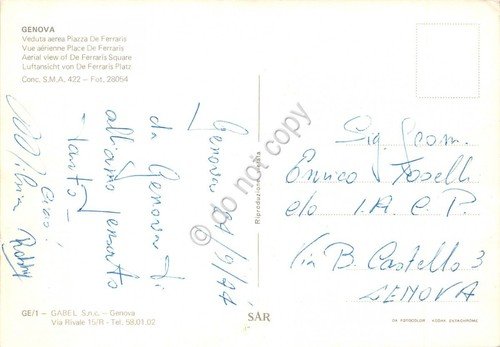 GENOVA
Veduta aerea Piazza De Ferraris
Vue aérienne Place De Ferraris
Aerial view of De Ferraris Square
Luftansicht von De Ferraris Platz
Conc. S.M.A. 422 - Fot. 28054
Genova
da Genova ti
abbiamo pensato
tanto -
Ciao!
Sig. Geom.
Enrico Foselli
c/o I.A.C.P.
Via B. Castello 3
GENOVA
Riproduzione vietata
do not copy
GE/1 - GABEL S.n.c. - Genova
Via Rivale 15/R - Tel. 58.01.02
SAR
DA FOTOCOLOR KODAK EKTACHROME